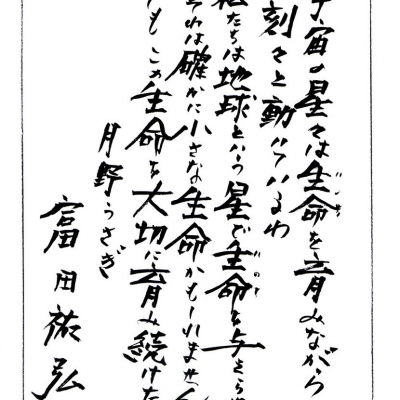 宇宙の星々は生命を育みながら
刻々と動いているわ
私たちは地球という星で生命を与えられ
それは確かに小さな生命かもしれません
でもこの生命を大切に育み続けた
月野うさぎ
富田祐弘